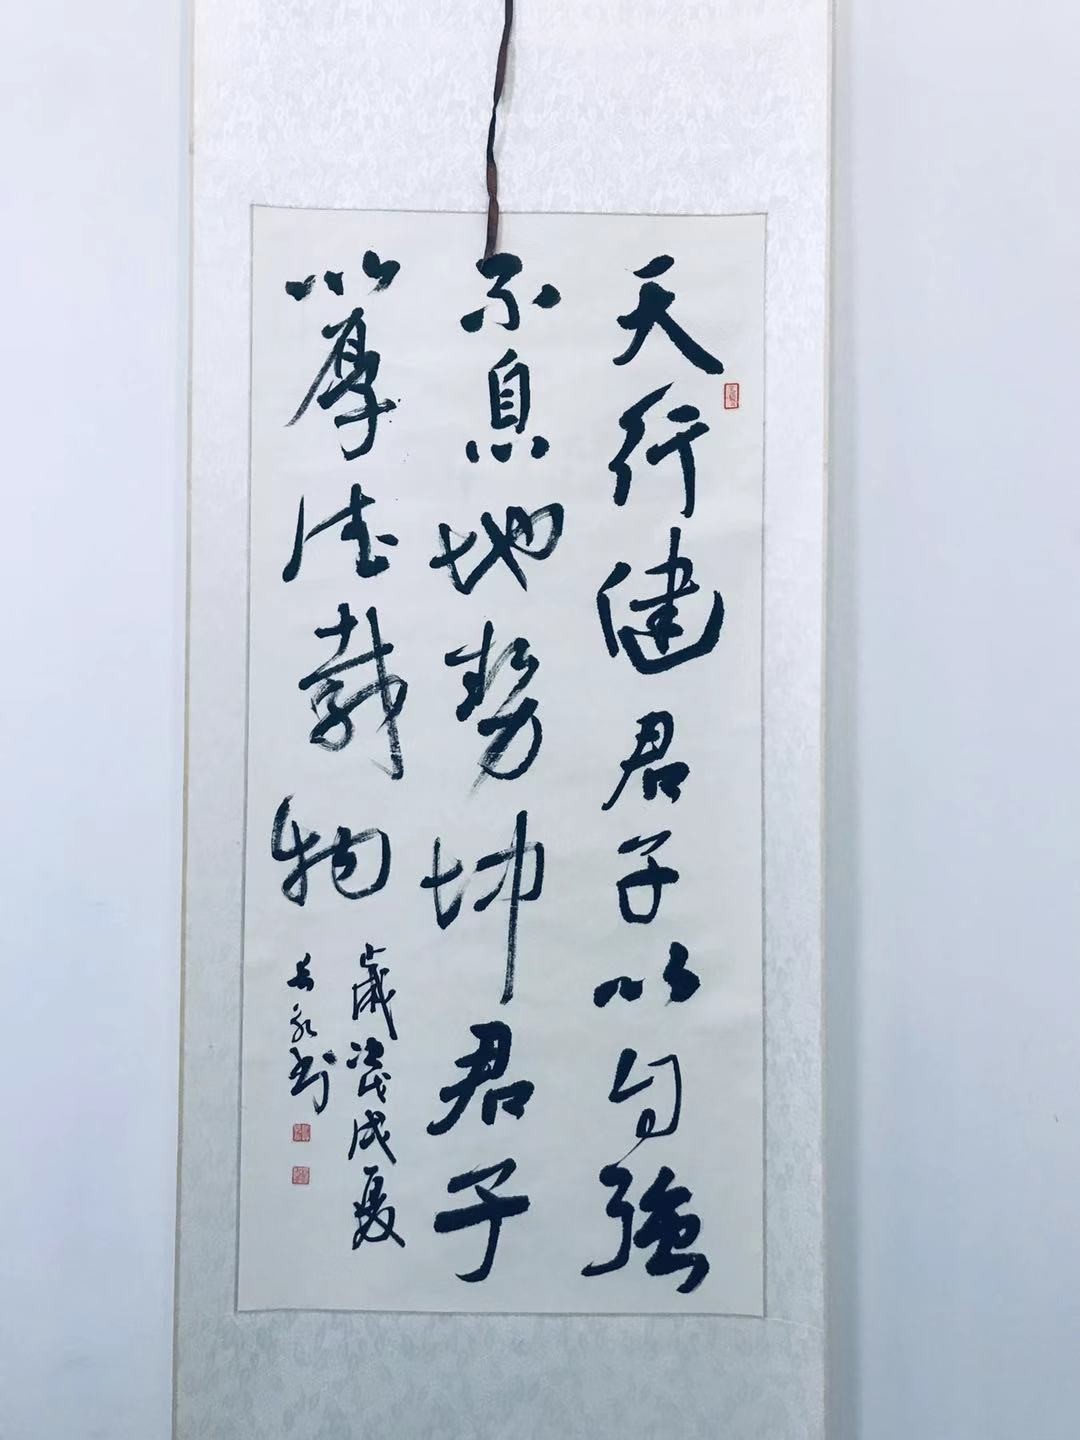 天行健君子以自強
不息地勢坤君子
以厚德載物
歲次戊戌夏
長永書